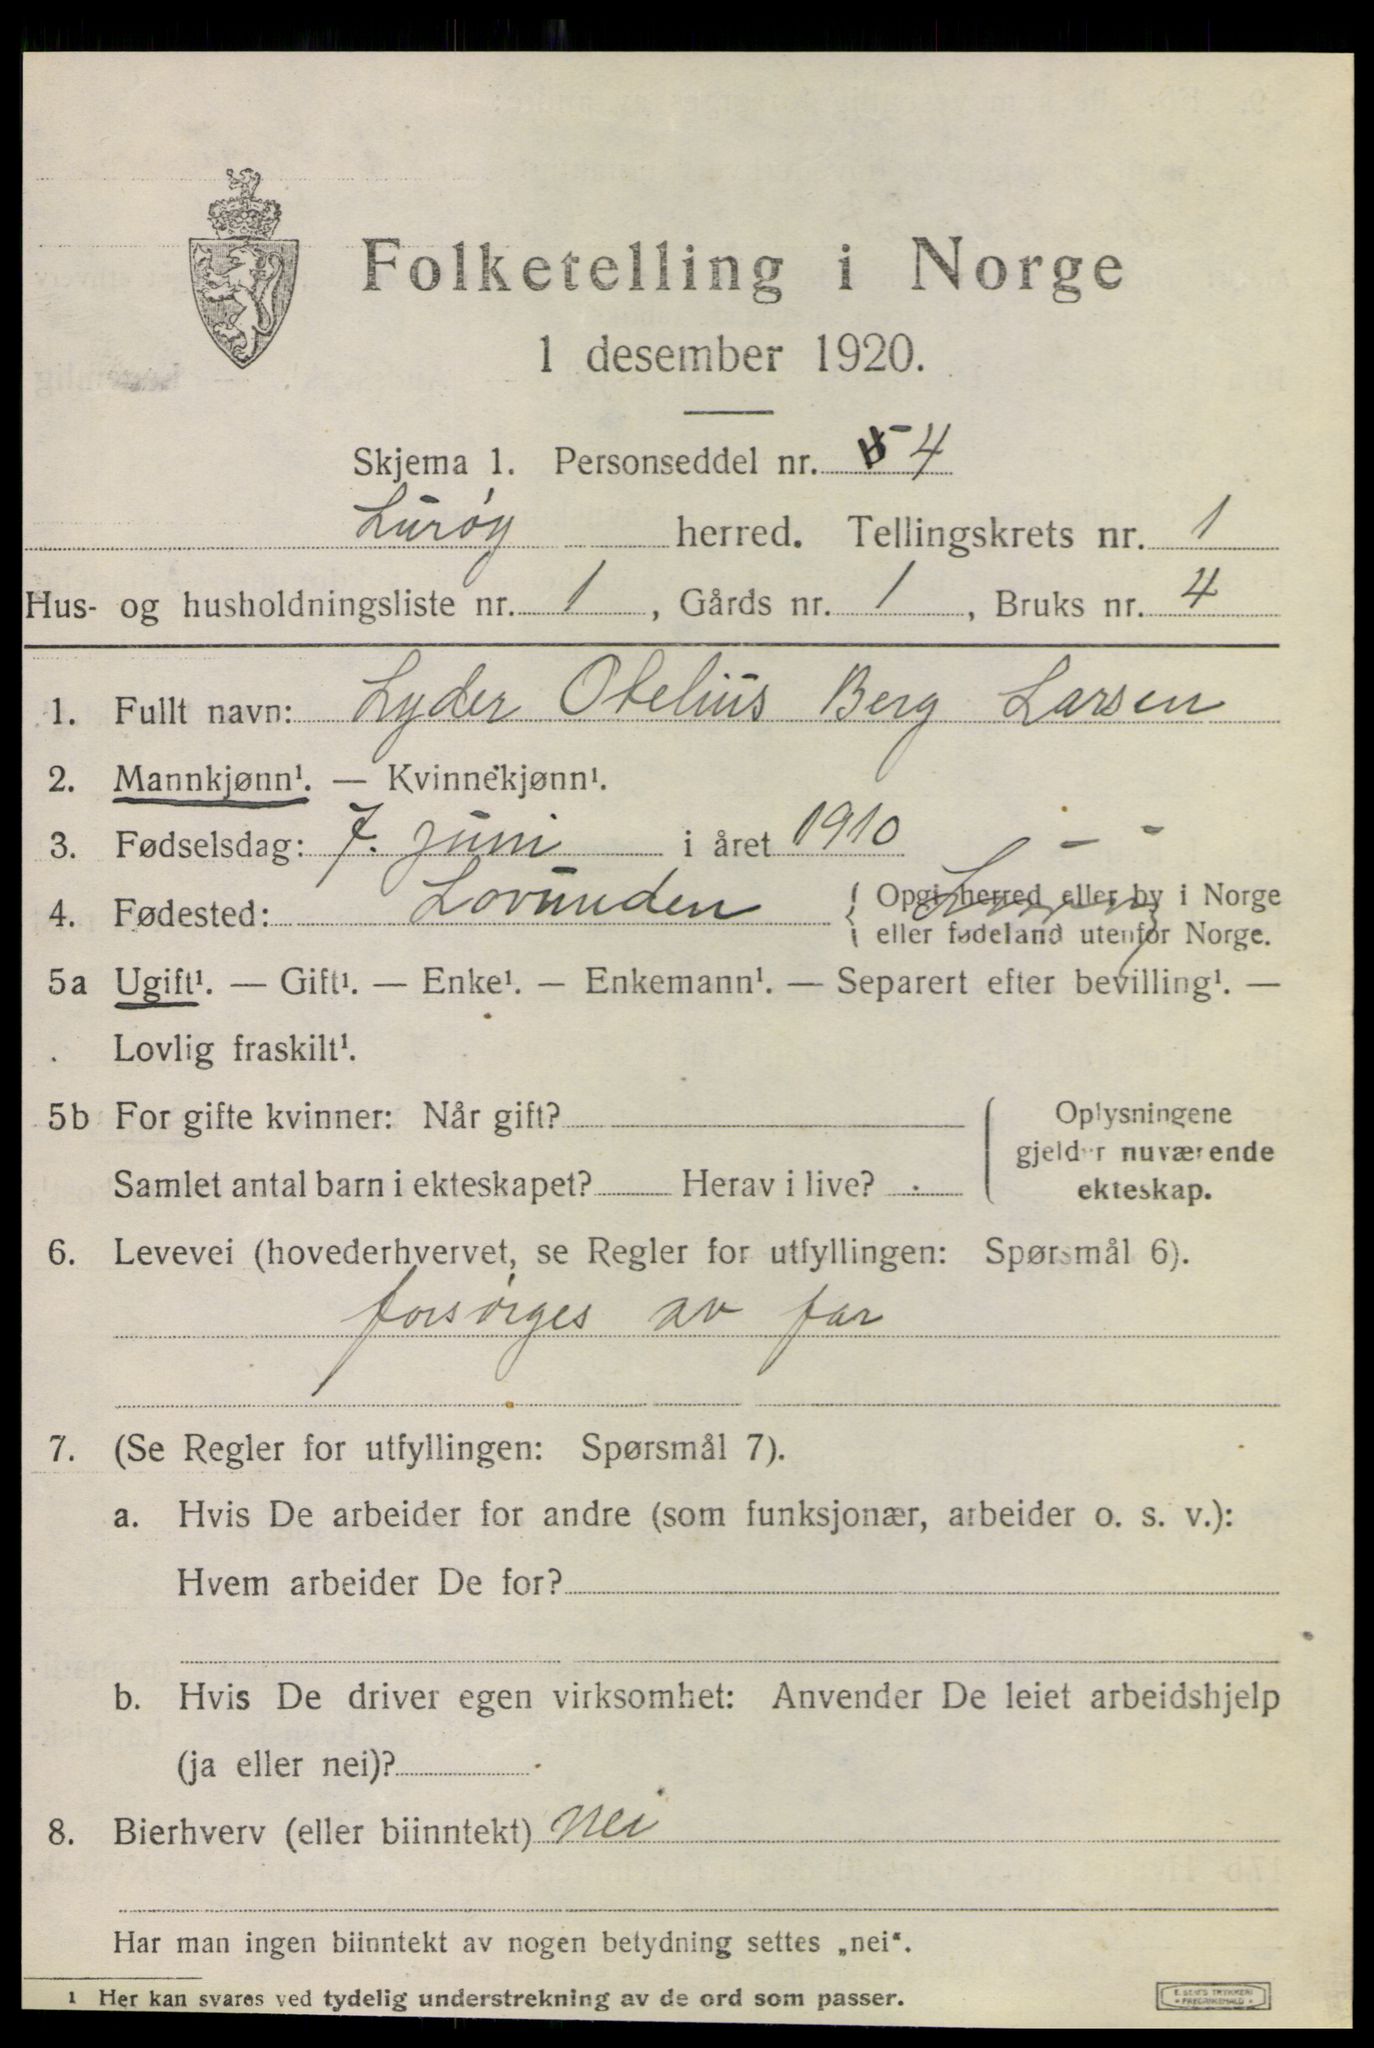 Folketelling i Norge
1 desember 1920.
Skjema 1. Personseddel nr. 4
Lurøy herred. Tellingskrets nr. 1
Hus- og husholdningsliste nr. 1, Gårds nr. 1, Bruks nr. 4
1. Fullt navn: Lyder Otelius Berg Larsen
2. Mannkjønn¹. — Kvinnekjønn¹.
3. Fødselsdag: 7. juni i året 1910
4. Fødested: Lovunden { Opgi herred eller by i Norge
eller fødeland utenfor Norge.
Lurøy
5a Ugift¹. — Gift¹. — Enke¹. — Enkemann¹. — Separert efter bevilling¹. —
Lovlig fraskilt¹.
5b For gifte kvinner: Når gift? { Oplysningene
gjelder nuværende
Samlet antal barn i ekteskapet? Herav i live? ekteskap.
6. Levevei (hovederhvervet, se Regler for utfyllingen: Spørsmål 6).
forsørges av far
7. (Se Regler for utfyllingen: Spørsmål 7).
a. Hvis De arbeider for andre (som funksjonær, arbeider o. s. v.):
Hvem arbeider De for?
b. Hvis De driver egen virksomhet: Anvender De leiet arbeidshjelp
(ja eller nei)?
8. Bierhverv (eller biinntekt) nei
Har man ingen biinntekt av nogen betydning settes „nei“.
¹ Her kan svares ved tydelig understrekning av de ord som passer.